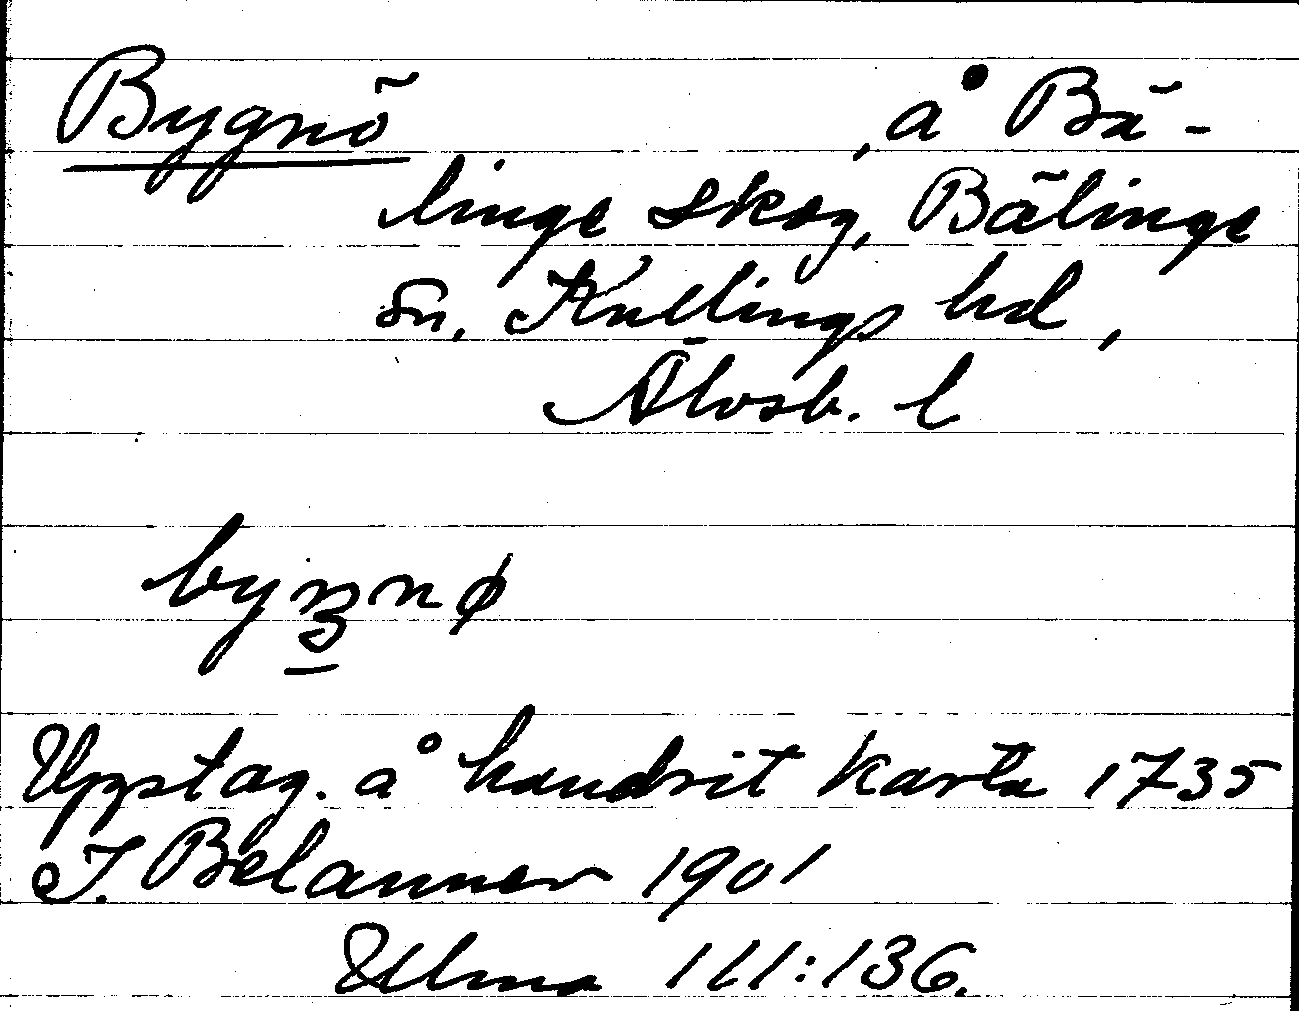 Bygnö , å Bä-
linge skog, Bälinge
sn, Kullings hd,
Älvsb. l
byʒnø
Upptag. å handrit karta 1735
J. Belanner 1901
Ulma 111:136.